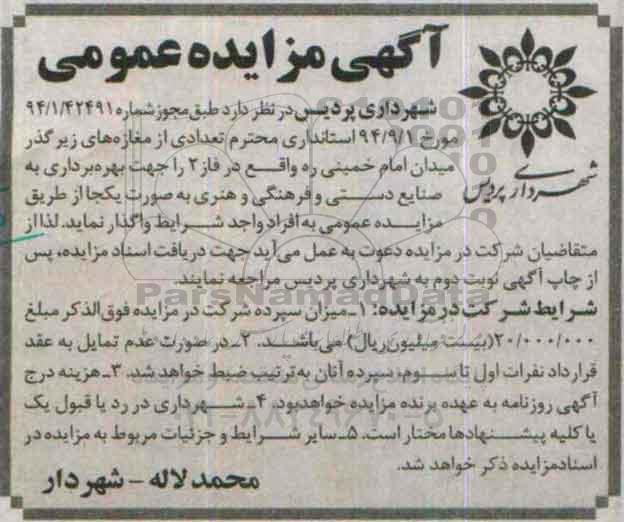 آگهی مزایده عمومی
شهرداری پردیس در نظر دارد طبق مجوز شماره ۹۴/۱/۴۲۴۹۱
مورخ ۹۴/۹/۱ استانداری محترم تعدادی از مغازه‌های زیر گذر
میدان امام خمینی ره واقع در فاز ۲ را جهت بهره‌برداری به
صنایع دستی و فرهنگی و هنری به صورت یکجا از طریق
مزایده عمومی به افراد واجد شرایط واگذار نماید. لذا از
شهرداری پردیس
متقاضیان شرکت در مزایده دعوت به عمل می‌آید جهت دریافت اسناد مزایده، پس
از چاپ آگهی نوبت دوم به شهرداری پردیس مراجعه نمایند.
شرایط شرکت در مزایده: ۱ـ میزان سپرده شرکت در مزایده فوق‌الذکر مبلغ
۲۰/۰۰۰/۰۰۰ (بیست میلیون ریال) می‌باشد. ۲ـ در صورت عدم تمایل به عقد
قرارداد نفرات اول تا سوم، سپرده آنان به ترتیب ضبط خواهد شد. ۳ـ هزینه درج
آگهی روزنامه به عهده برنده مزایده خواهد بود. ۴ـ شهرداری در رد یا قبول یک
یا کلیه پیشنهادها مختار است. ۵ـ سایر شرایط و جزئیات مربوط به مزایده در
اسناد مزایده ذکر خواهد شد.
محمد لاله - شهردار
ParsNamadData